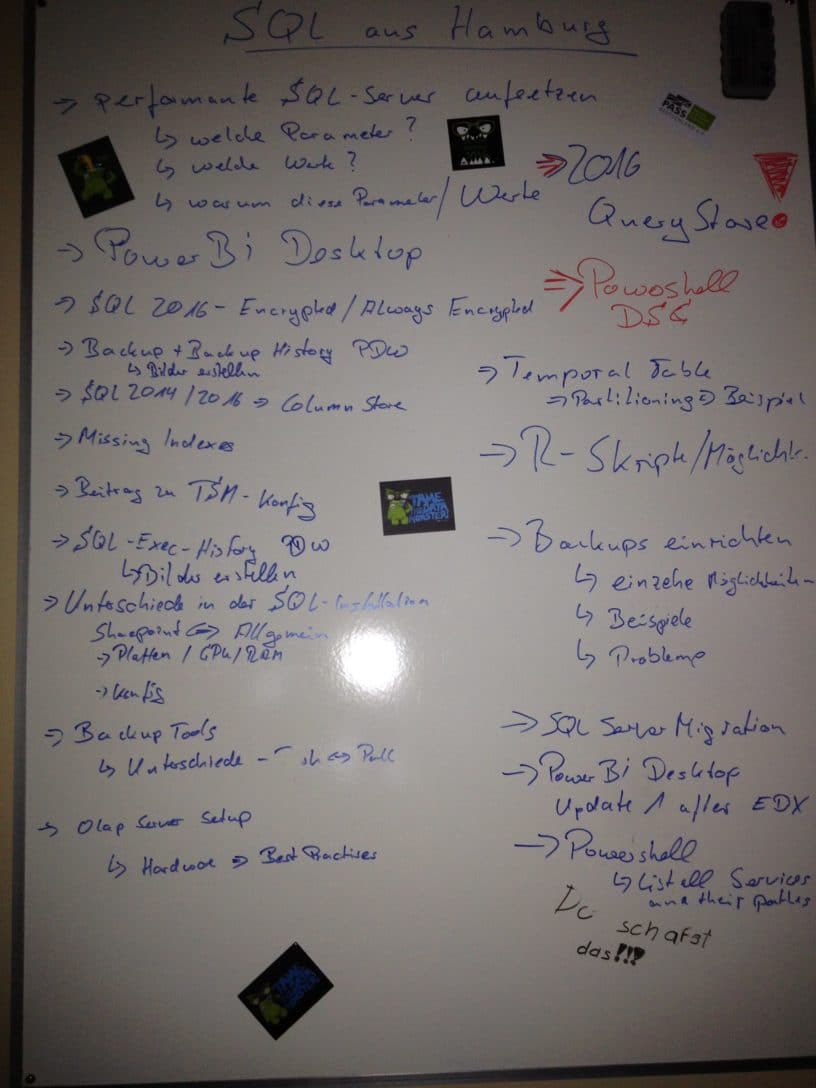 SQL aus Hamburg
-> performante SQL-Server aufsetzen
↳ welche Parameter?
↳ welche Werte?
↳ warum diese Parameter/Werte
-> PowerBi Desktop
-> SQL 2016 - Encrypted/Always Encrypted
-> Backup + Backup History PDW
↳ Bilder erstellen
-> SQL 2014/2016 -> Column Store
-> Missing Indexes
-> Beitrag zu TSM-Konfig
-> SQL-Exec-History PDW
↳ Bilder erstellen
-> Unterschiede in der SQL-Installation
Sharepoint <=> Allgemein
-> Platten / CPU/RAM
-> Konfig
-> Backup Tools
↳ Unterschiede - <=> Pull
-> Olap Server Setup
↳ Hardware => Best Practises
PASS
=> 2016
Query Store
=> Powershell
DSC
-> Temporal Table
=> Partitioning => Beispiel
-> R-Skripte/Möglichk.
-> Backups einrichten
↳ einzelne Möglichkeiten
↳ Beispiele
↳ Probleme
-> SQL Server Migration
-> PowerBi Desktop
Update 1 after EDX
-> Powershell
↳ List all Services
and their paths
Du schafst
das!!!
TAME
THE DATA
MONSTER!